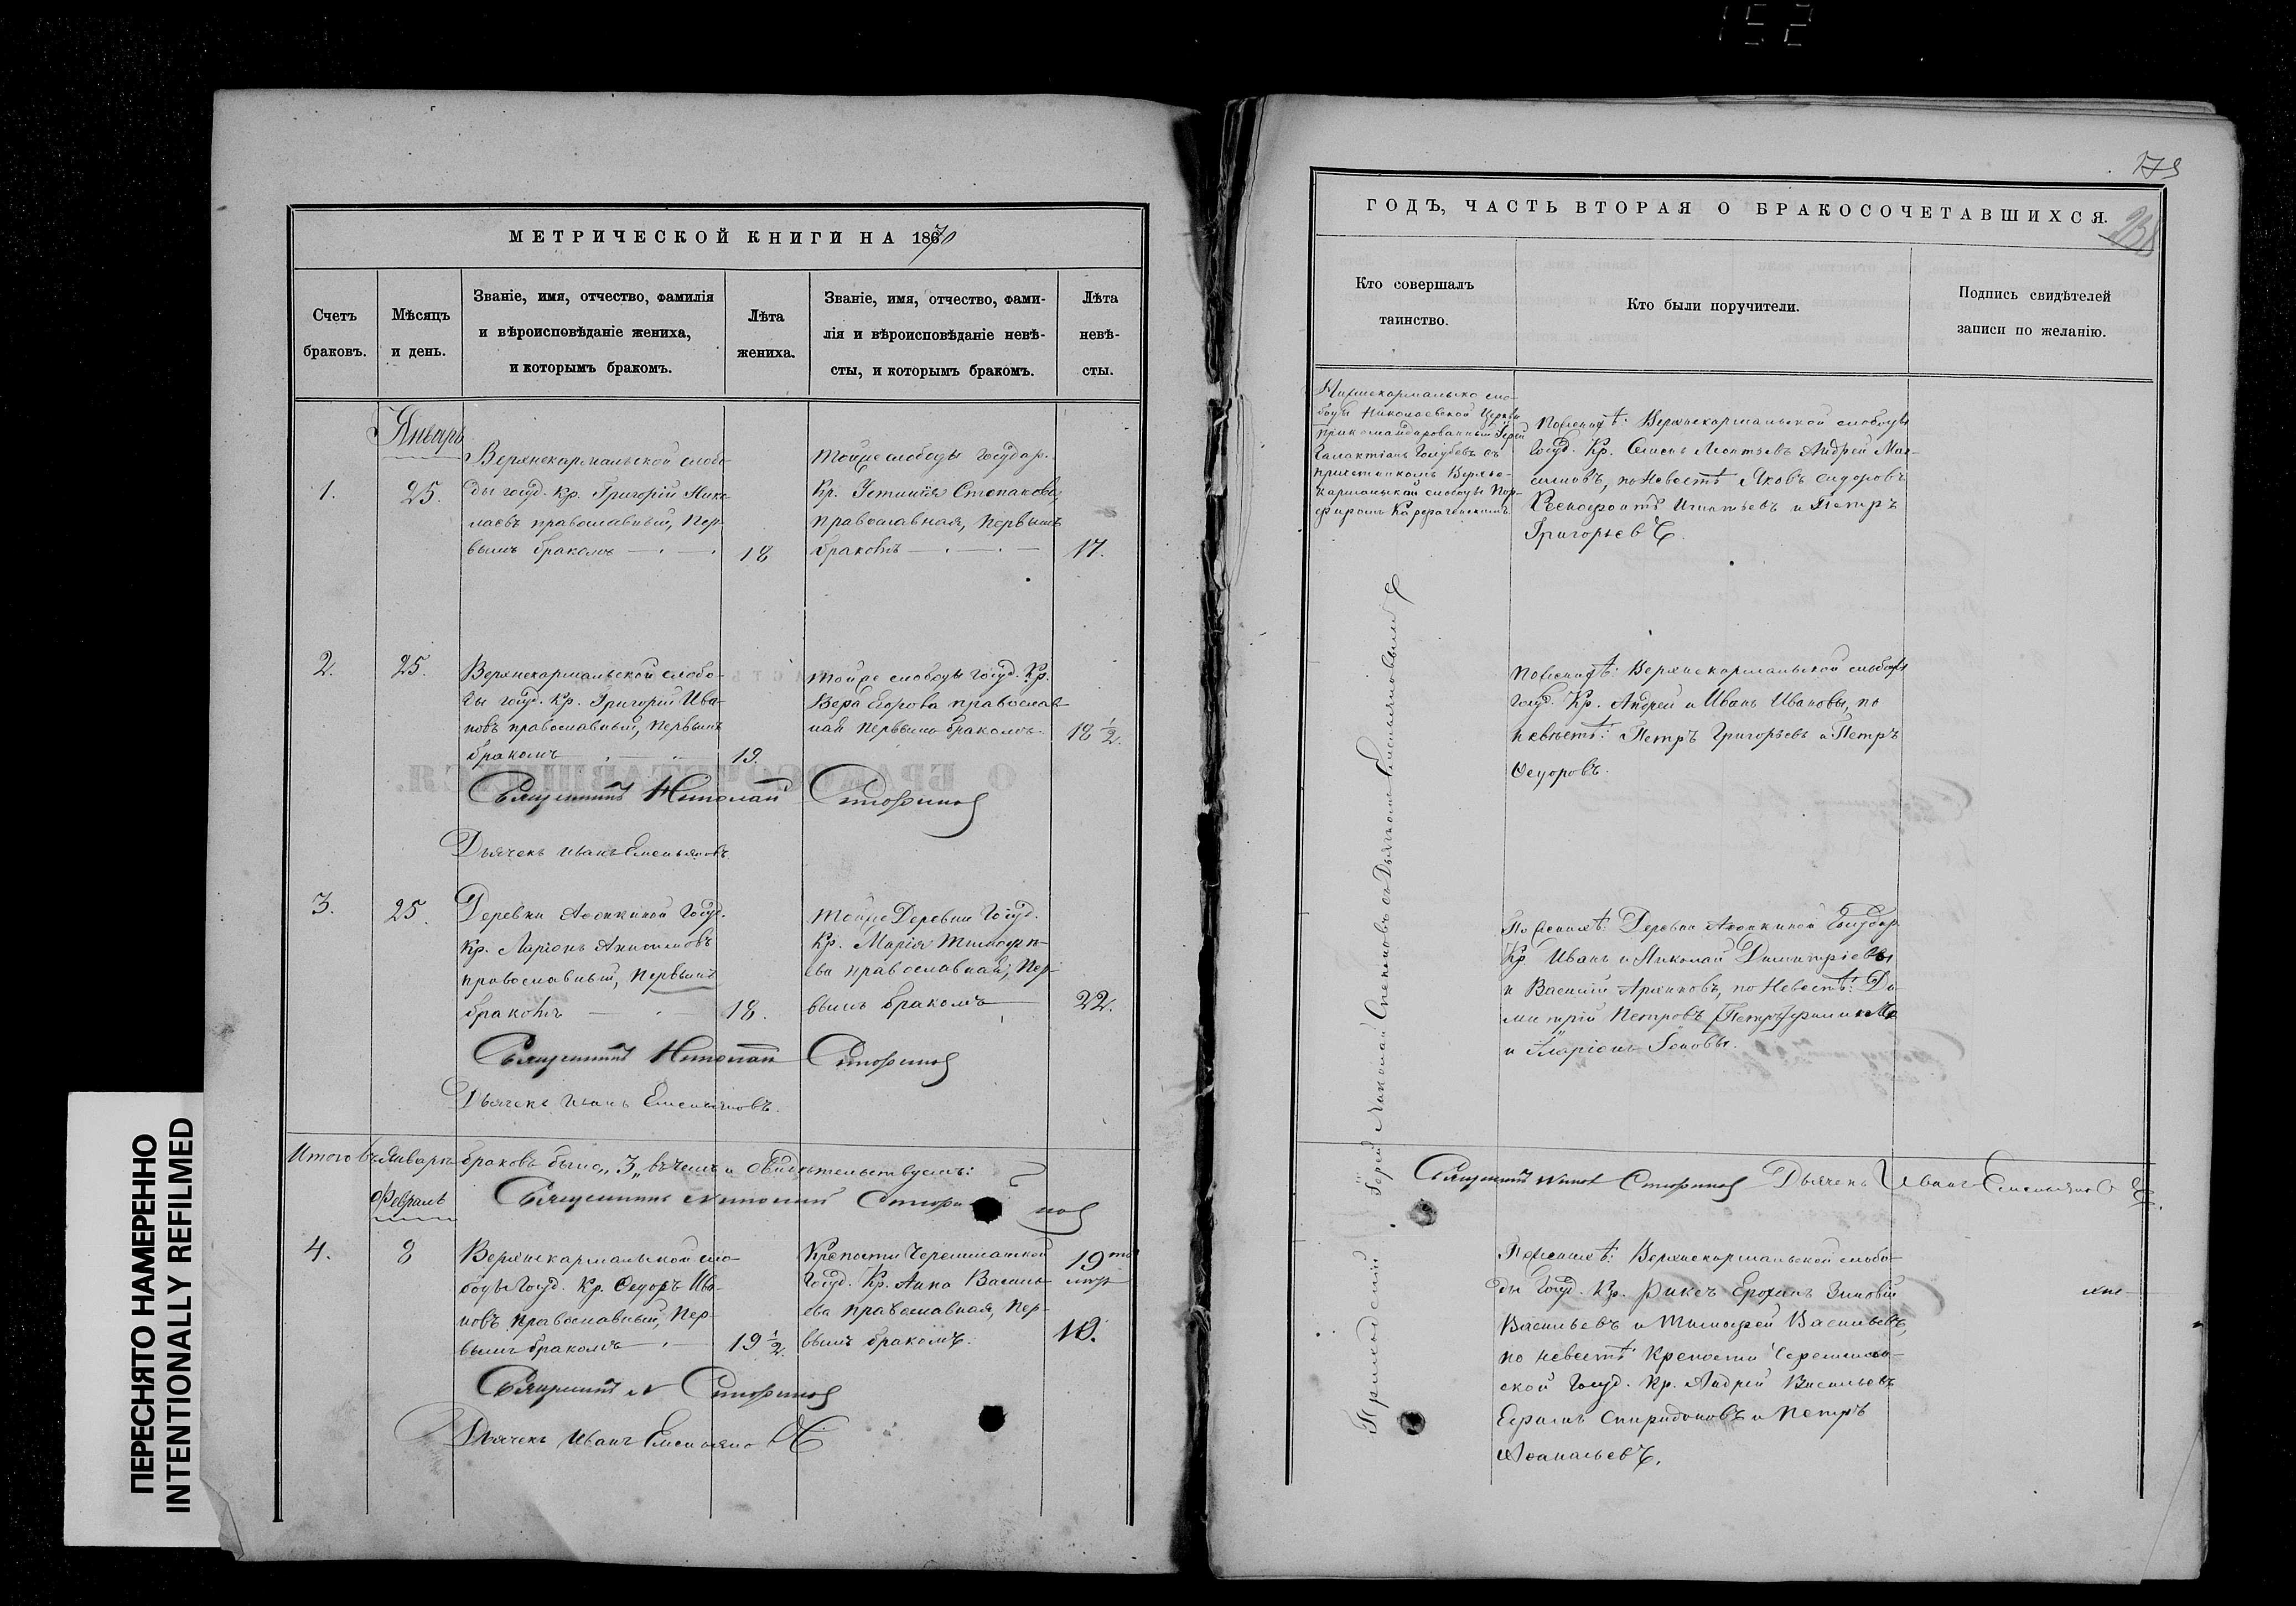 152
МЕТРИЧЕСКОЙ КНИГИ НА 1870
Счетъ браковъ.
Мѣсяцъ и день.
Званіе, имя, отчество, фамилія
и вѣроисповѣданіе жениха,
и которымъ бракомъ.
Лѣта жениха.
Званіе, имя, отчество, фами-
лія и вѣроисповѣданіе невѣ-
сты, и которымъ бракомъ.
Лѣта невѣ-
сты.
Январь
1.
25.
Верхнекармальской слобо-
ды госуд. Кр. Григорій Нико-
лаевъ православный, Пер-
вымъ бракомъ
18
Тойже слободы Государ.
Кр. Устинія Степанова
православная, первымъ
бракомъ
17.
2.
25.
Верхнекармальской слобо-
ды госуд. Кр. Григорій Ива-
новъ православный, первымъ
бракомъ
19.
Тойже слободы госуд. Кр.
Вера Егорова православ-
ная первымъ бракомъ
18 1/2.
Священникъ Николай
Дьячекъ Иванъ Емельяновъ
3.
25.
Деревни Аѳонкиной Госуд.
Кр. Ларіонъ
православный, первымъ
бракомъ
18.
Тойже Деревни Госуд.
Кр. Марія Тимоѳее-
ва православная, Пер-
вымъ бракомъ
22.
Священникъ Николай
Дьячекъ Иванъ Емельяновъ.
Итого въ Январѣ браковъ было „3„ въ чемъ и свидѣтельствуемъ:
Священникъ Николай
Февраль
4.
8
Верхнекармальской сло-
боды Госуд. Кр. Ѳедоръ Ива-
новъ православный, Пер-
вымъ бракомъ
19 1/2.
Крѣпости Черемшанской
Госуд. Кр. Анна Василь-
ева православная, пер-
вымъ бракомъ.
19
Священникъ Н
Дьячекъ Иванъ Емельяновъ
ГОДЪ, ЧАСТЬ ВТОРАЯ О БРАКОСОЧЕТАВШИХСЯ.
Кто совершалъ
таинство.
Кто были поручители.
Подпись свидѣтелей
записи по желанію.
Нижнекармальско сло-
боды Николаевской Церкви
прикомандированный Іерей
Галактіонъ Голубевъ съ
причетникомъ Верхне-
кармальской слободы Пор-
фиромъ
По женихѣ: Верхнекармальской слободы
Госуд. Кр. Семенъ Леонтьевъ Андрей Мак-
симовъ, по Невестѣ Яковъ Сидоровъ
Ксенофонтъ Игнатьевъ и Петръ
Григорьевъ.
По женихѣ: Верхнекармальской слободы
Госуд. Кр. Андрей и Иванъ Ивановы, по
невестѣ: Петръ Григорьевъ и Петръ
Ѳедоровъ.
По женихѣ: Деревни Аѳонкиной Государ.
Кр. Иванъ и Николай Димитріевы
и Василій по Невестѣ: Ди-
митрій Петровъ Петръ
и Ларіонъ
Приходскій Іерей Николай съ Дьячкомъ Емельяновымъ
Священникъ Никол Дьячекъ Иванъ Емельяновъ
По женихѣ: Верхнекармальской слобо-
ды Госуд. Кр. Зиновій
Васильевъ и Тимоѳей Васильевъ,
по невестѣ Крепости Черемшан-
ской Госуд. Кр. Андрей Васильевъ
Ефимъ Спиридоновъ и Петръ
Аѳанасьевъ.
ПЕРЕСНЯТО НАМЕРЕННО
INTENTIONALLY REFILMED